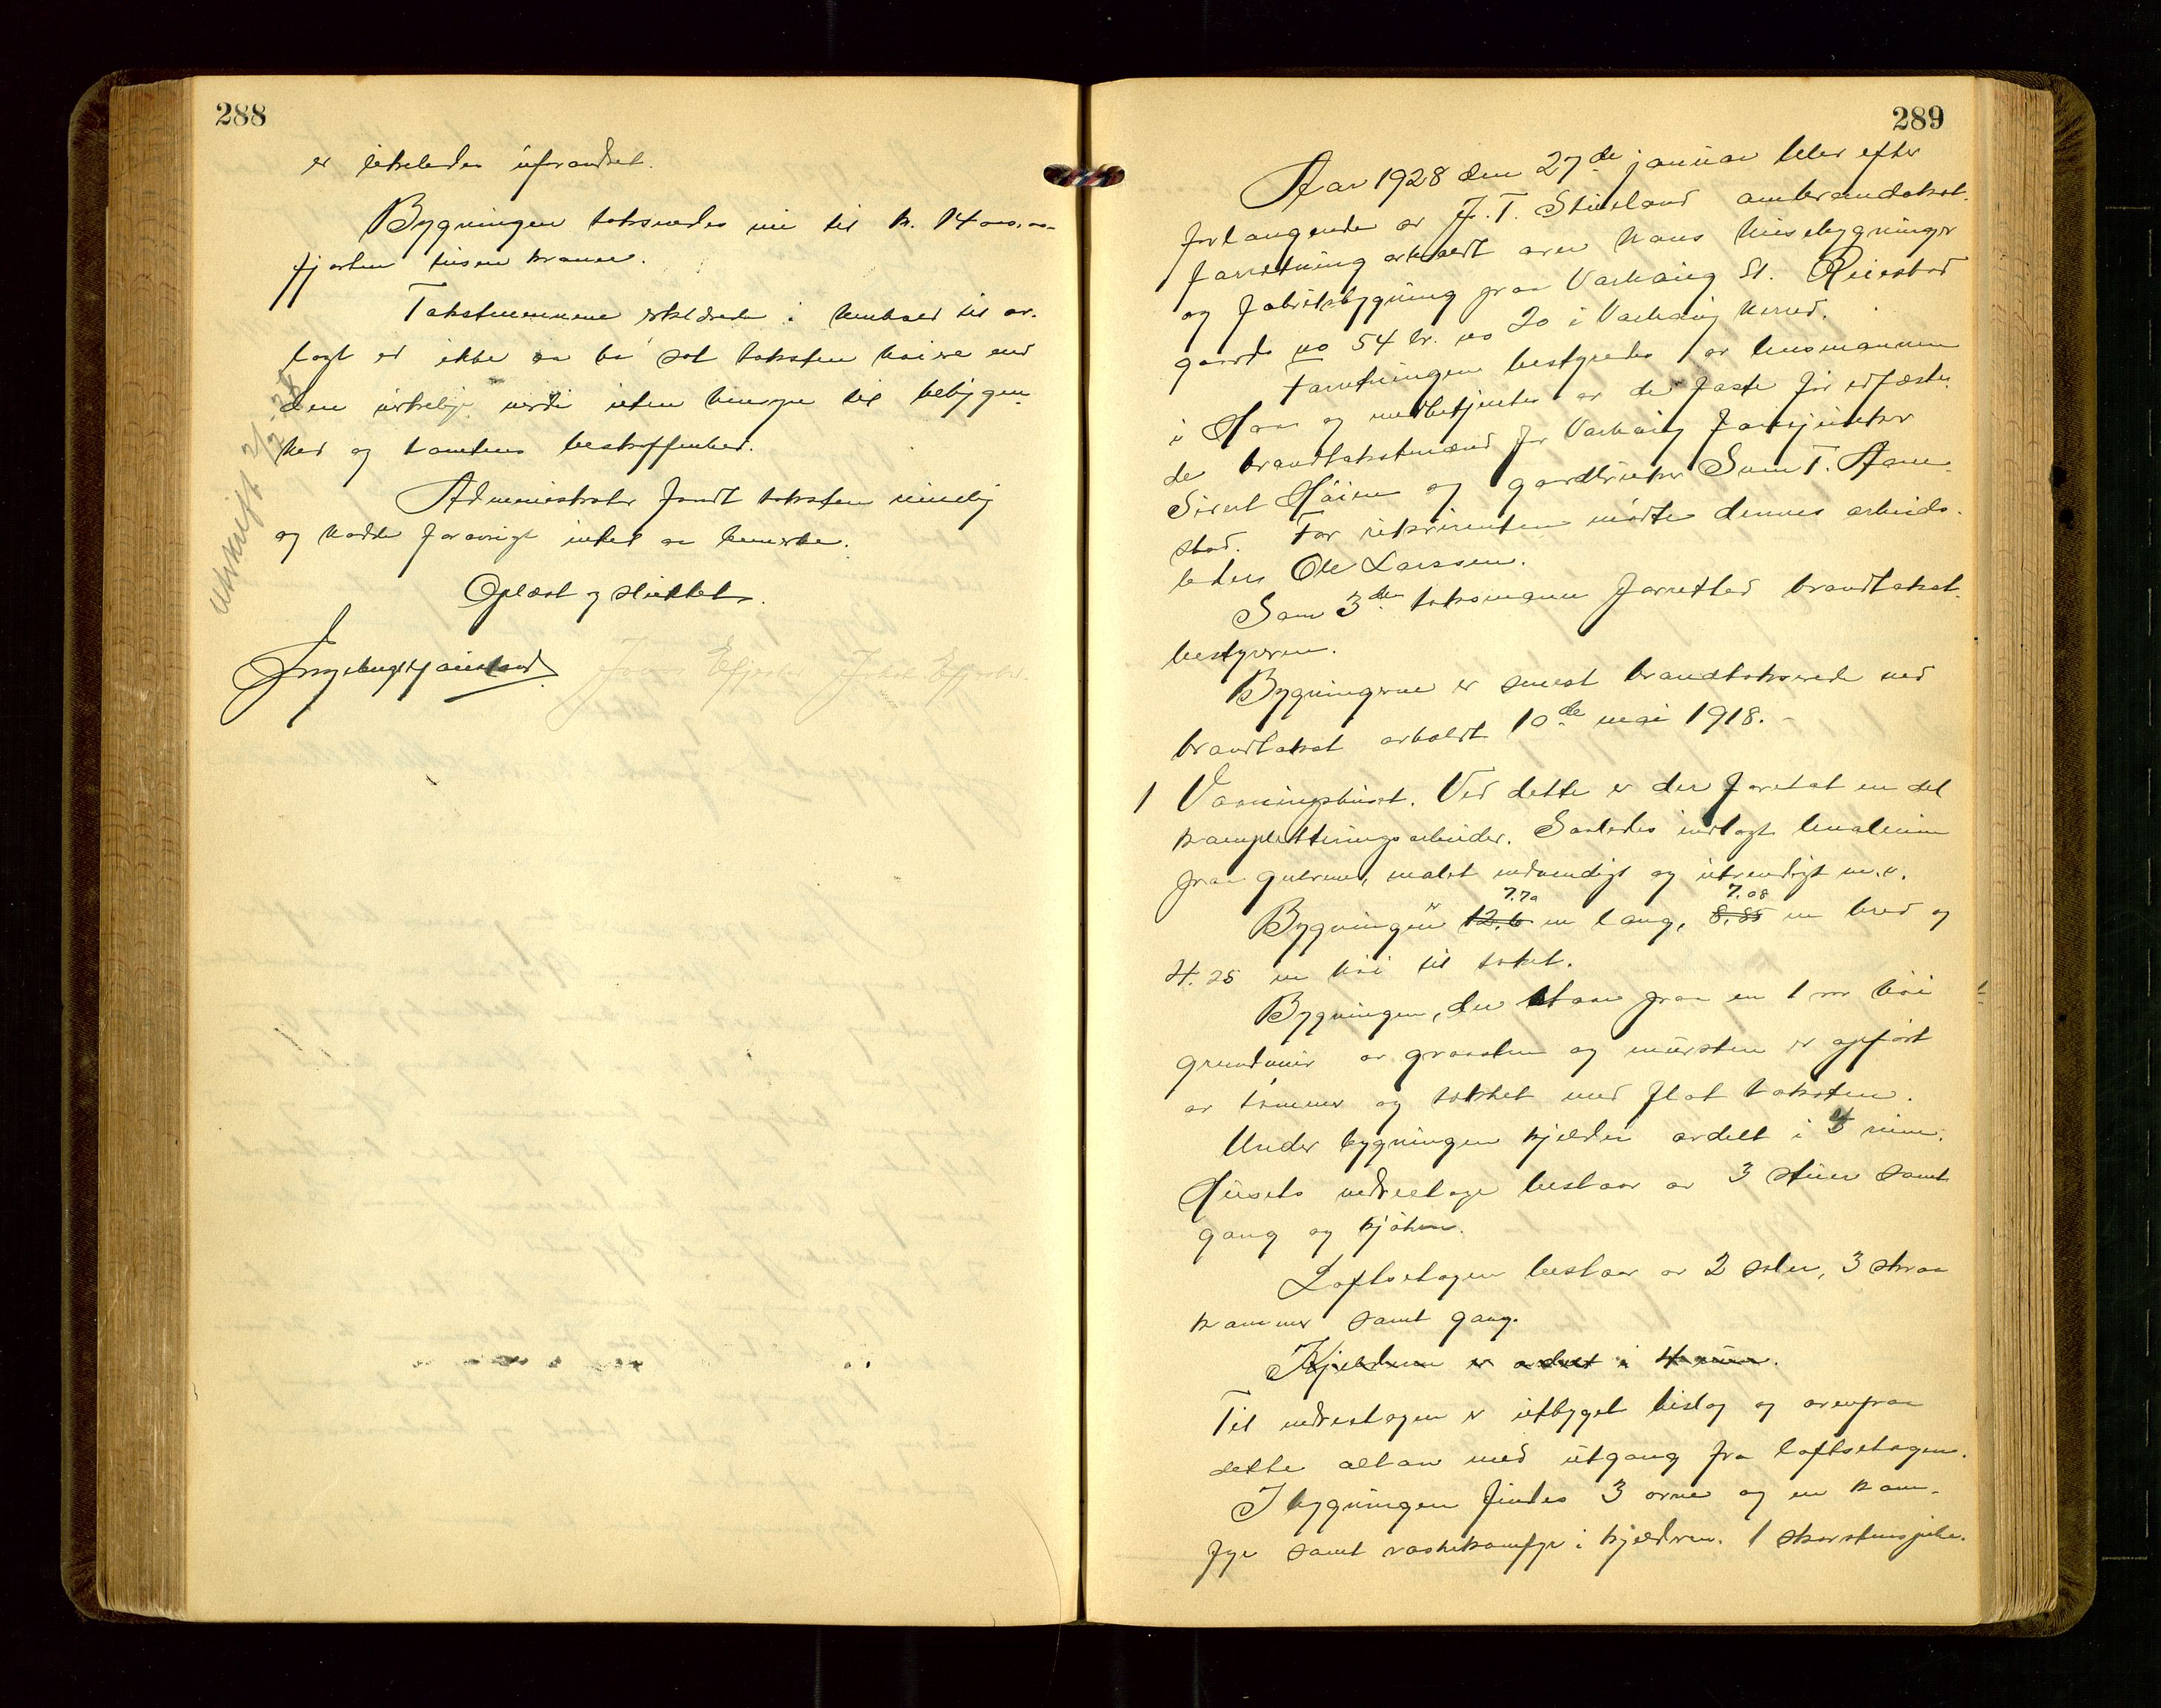 288
er likeledes uforandret.
Bygningen taksertes nu til kr. 14000,00
fjorten tusen kroner.
Takstmennene erklærede i henhold til av-
lagt ed ikke at ha sat taksten høiere end
den virkelige verdi uten hensyn til beliggen-
het og tomtens beskaffenhed.
Administrator fandt taksten rimelig
og hadde forøvrigt intet at bemerke.
Oplæst og sluttet.
Jonas Efjestad Jakob Efjestad
Utskrift 2/2-28
289
Aar 1928 den 27de januar blev efter
forlangende av J. T. Stueland ombrandtakst-
forretning avholdt over hans husebygninger
og fabrikbygning paa Varhaug St. Reiestad
gaards no 54 br. no 20 i Varhaug herred.
Forretningen bestyredes av lensmannen
i Haa og medbetjentes av de faste før edfæste-
de brandtakstmænd for Varhaug forsejunker
Sivert Høien og gardbruker Sven T. Aane-
stad. For rekvirenten møtte dennes arbeids-
leder Ole Larssen.
Som 3die taksmann forrettet brandtakst-
bestyreren.
Bygningerne er senest brandtakserede ved
brandtakst avholdt 10de mai 1918. -
1 Vaaningshuset. Ved dette er der foretat en del
kompletteringsarbeider. Saaledes indlagt linoleum
paa gulvene, malet indvendigt og utvendigt m.v.
7.70 7.08
Bygningen er 12.6 m lang, 8.85 m bred og
4.25 m høi til taket.
Bygningen, der staar paa en 1 m høi
grundmur av graasten og mursten er opført
av tømmer og tækket med flat taksten.
Under bygningen kjelder avdelt i 4 rum.
Husets nedreetage bestaar av 3 stuer samt
gang og kjøken.
Loftsetagen bestaar av 2 saler, 3 skraa
kammer samt gang.
Kjelderen er avdelt i 4 rum.
Til nedreetagen er utbygget bislag og ovenpaa
dette altan med utgang fra loftsetagen.
I bygningen findes 3 ovne og en kom-
fyr samt vaskekomfyr i kjelderen. 1 skorstenspibe.